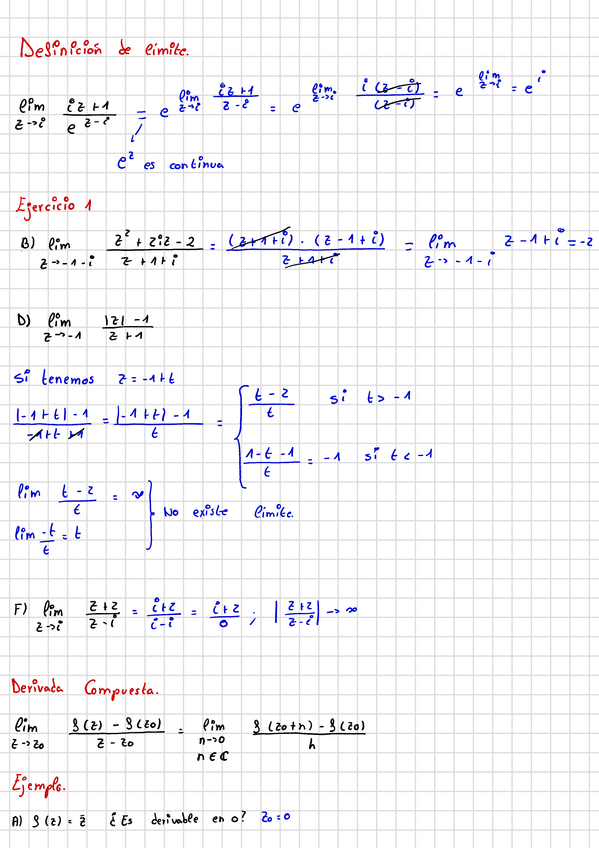 Definición de límite.
lim z→i (iz+1)/(e^(z-i)) = e^(lim z→i (iz+1)/(z-i)) = e^(lim z→i i(z-i)/(z-i)) = e^(lim z→i) = e^i
e^z es continua
Ejercicio 1
B) lim z→-1-i (z²+2iz-2)/(z+1+i) = ((z+1+i)·(z-1+i))/(z+1+i) = lim z→-1-i z-1+i = -2
D) lim z→-1 (|z|-1)/(z+1)
Si tenemos z=-1+t
(|-1+t|-1)/(-1+t+1) = (|-1+t)-1)/t = { (t-2)/t si t>-1
(1-t-1)/t = -1 si t<-1
lim (t-2)/t = ∞
lim -t/t = t } No existe límite.
F) lim z→i (z+2)/(z-i) = (i+2)/(i-i) = (i+2)/0 ; |(z+2)/(z-i)| → ∞
Derivada Compuesta.
lim z→z0 (f(z)-f(z0))/(z-z0) = lim h→0 h∈ℂ (f(z0+h)-f(z0))/h
Ejemplo.
A) f(z)=z̄ ¿Es derivable en 0? z0=0